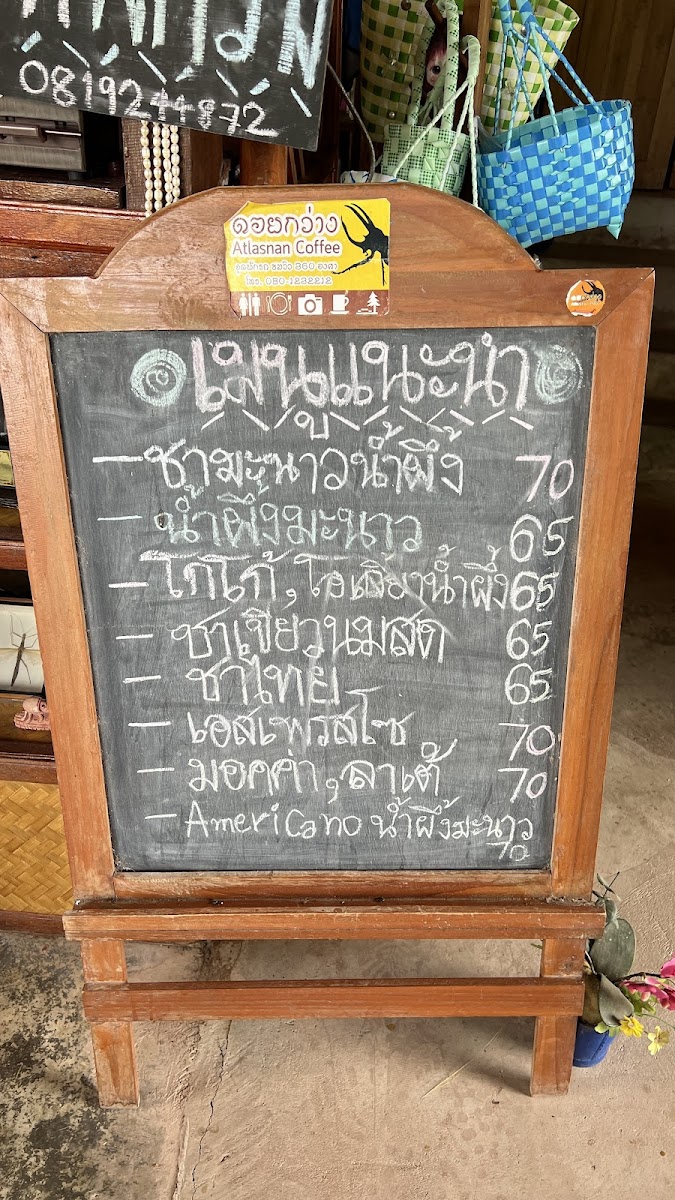 0819244872
ดอยกว่าง
Atlasnan Coffee
จุดพักรถ ชมวิว 360 องศา
โทร. 080-1232212
เมนูแนะนำ
- ชามะนาวน้ำผึ้ง 70
- น้ำผึ้งมะนาว 65
- โกโก้, โอเลี้ยงน้ำผึ้ง 65
- ชาเขียวนมสด 65
- ชาไทย 65
- เอสเพรสโซ 70
- มอคค่า, ลาเต้ 70
- Americano น้ำผึ้งมะนาว
70